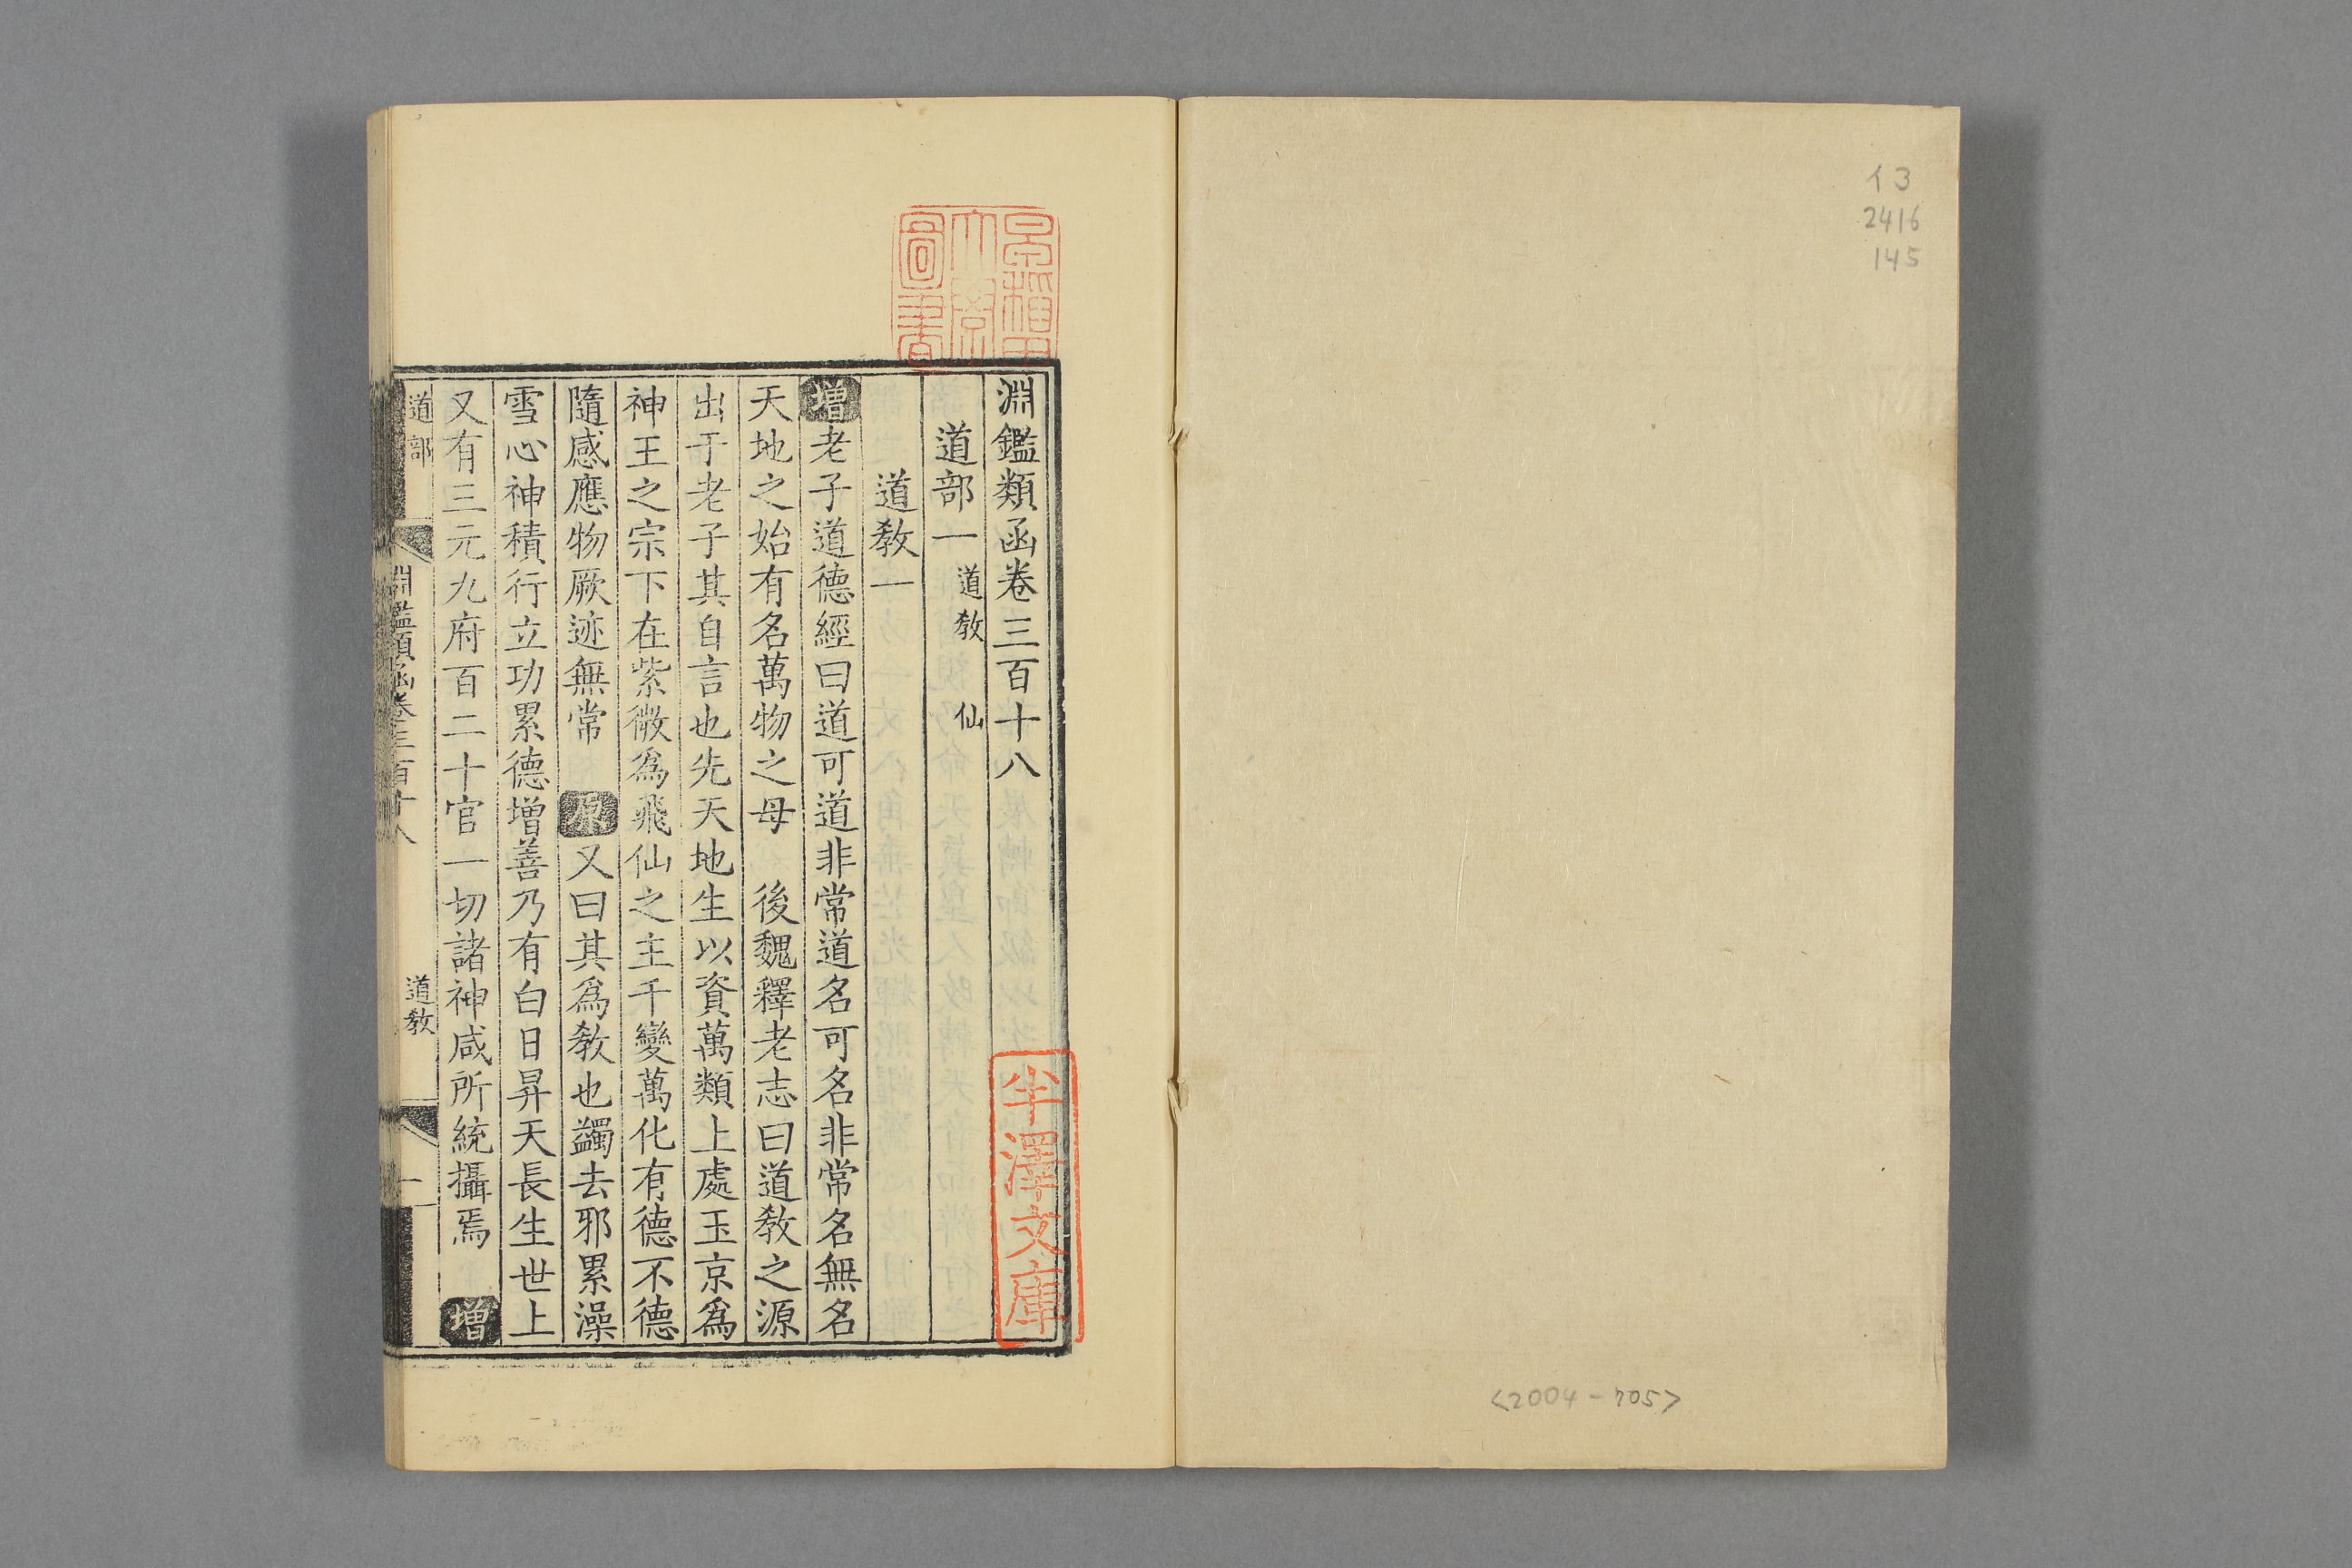 イ3
2416
145
<2004-705>
淵鑑類函卷三百十八
道部一 道教 仙
道教一
增老子道德經曰道可道非常道名可名非常名無名
天地之始有名萬物之母 後魏釋老志曰道教之源
出于老子其自言也先天地生以資萬類上處玉京爲
神王之宗下在紫微爲飛仙之主千變萬化有德不德
隨感應物厥迹無常 原又曰其爲教也蠲去邪累澡
雪心神積行立功累德增善乃有白日昇天長生世上
又有三元九府百二十官一切諸神咸所統攝焉 增
道部 淵鑑類函卷三百十八 道教 一
半澤文庫